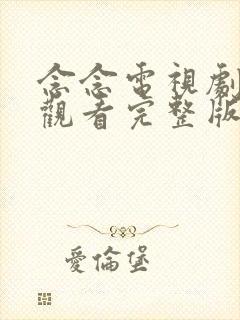 念念電視劇
觀看完整版
愛倫堡